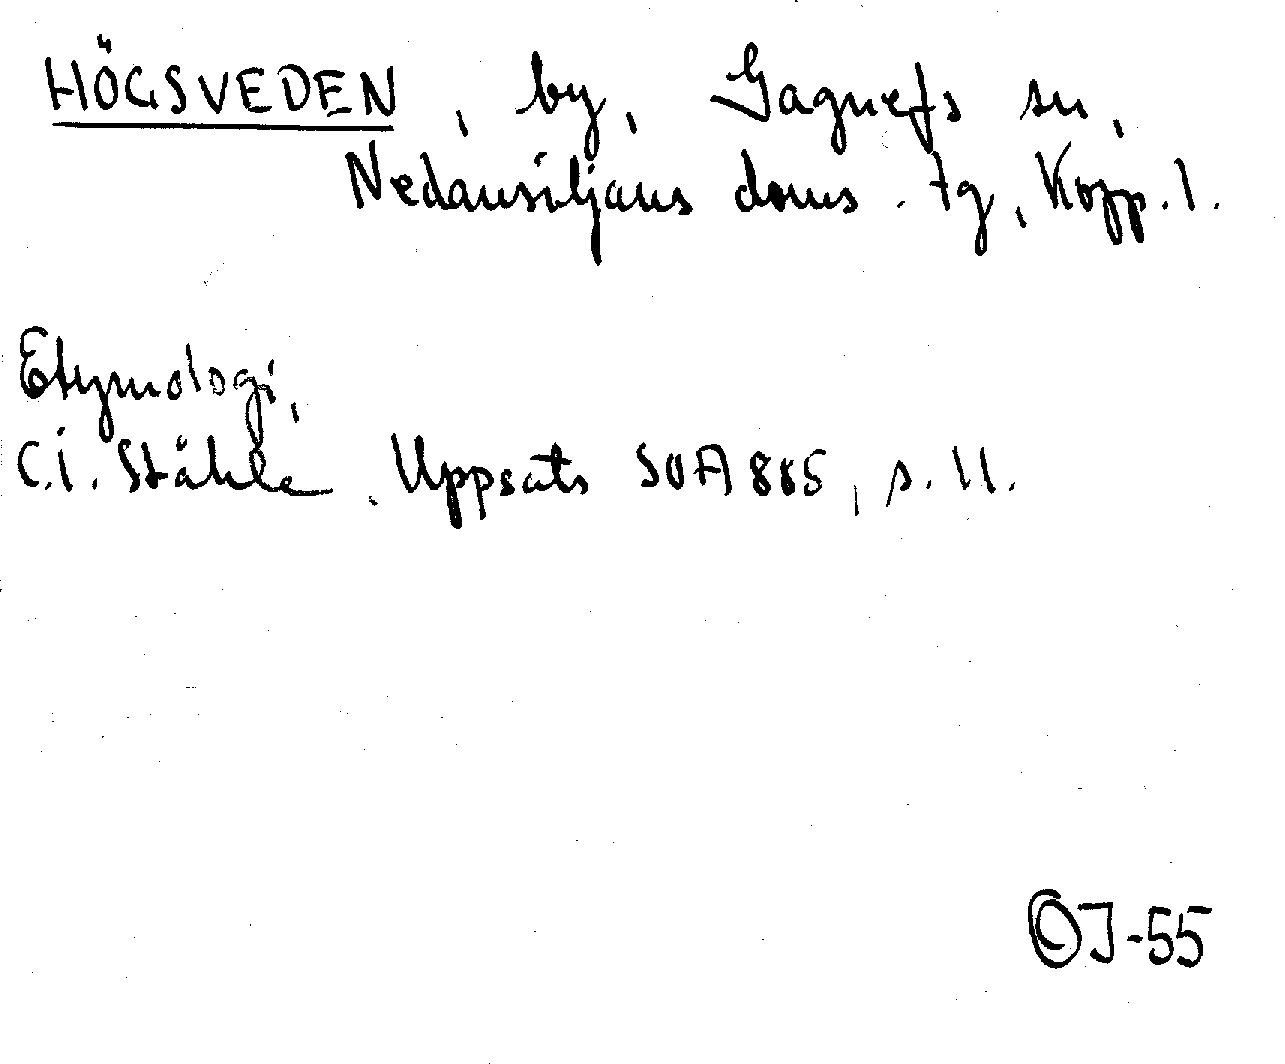 HÖGSVEDEN, by, Gagnefs sn,
Nedansiljans doms. tg, Kopp. l.
Etymologi,
C.I. Ståhle. Uppsats SOA 885, s. 11.
OJ-55